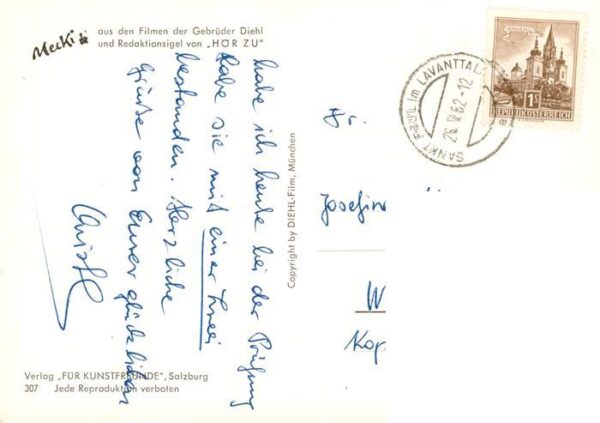 Mecki
aus den Filmen der Gebrüder Diehl
und Redaktionsigel von „HÖR ZU"
habe ich heute bei der Prüfung
habe sie mit einer Zwei
bestanden. Herzliche
Grüße von Eurer glücklichen
Copyright by DIEHL-Film, München
SANKT PAUL im LAVANTTAL
26.V.62-12
1S
REPUBLIK ÖSTERREICH
Josefin
W
Kop
Verlag „FÜR KUNSTFREUNDE", Salzburg
307 Jede Reproduktion verboten